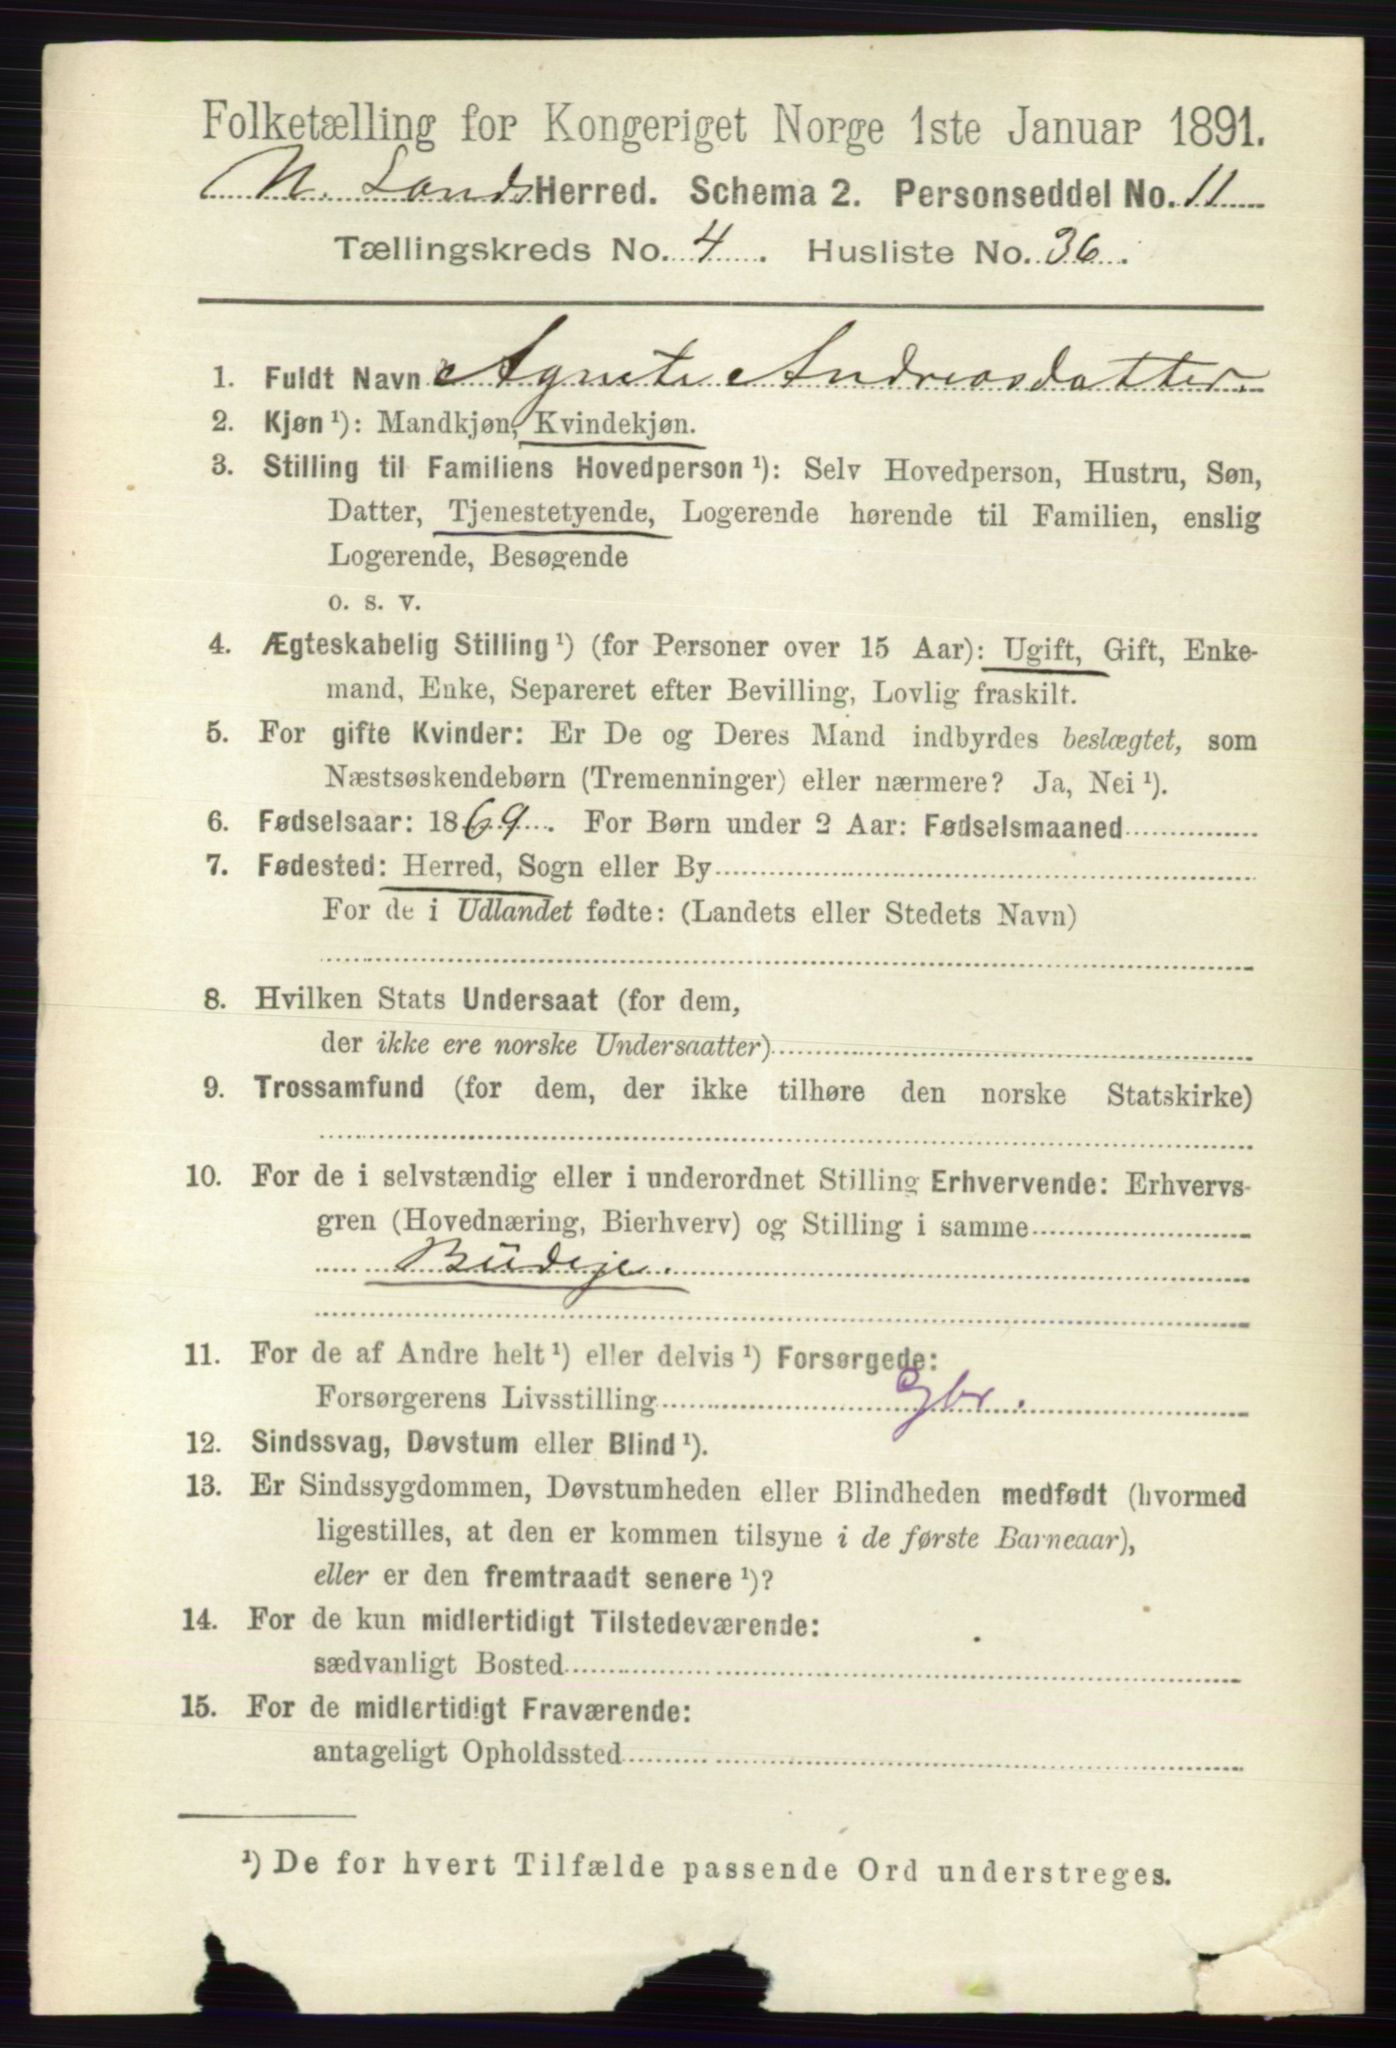 Folketælling for Kongeriget Norge 1ste Januar 1891.
N. Lands Herred. Schema 2. Personseddel No. 11
Tællingskreds No. 4. Husliste No. 36.
1. Fuldt Navn Agnete Andreasdatter.
2. Kjøn ¹): Mandkjøn, Kvindekjøn.
3. Stilling til Familiens Hovedperson ¹): Selv Hovedperson, Hustru, Søn,
Datter, Tjenestetyende, Logerende hørende til Familien, enslig
Logerende, Besøgende
o. s. v.
4. Ægteskabelig Stilling ¹) (for Personer over 15 Aar): Ugift, Gift, Enke-
mand, Enke, Separeret efter Bevilling, Lovlig fraskilt.
5. For gifte Kvinder: Er De og Deres Mand indbyrdes beslægtet, som
Næstsøskendebørn (Tremenninger) eller nærmere? Ja, Nei ¹).
6. Fødselsaar: 1869. For Børn under 2 Aar: Fødselsmaaned
7. Fødested: Herred, Sogn eller By
For de i Udlandet fødte: (Landets eller Stedets Navn)
8. Hvilken Stats Undersaat (for dem,
der ikke ere norske Undersaatter)
9. Trossamfund (for dem, der ikke tilhøre den norske Statskirke)
10. For de i selvstændig eller i underordnet Stilling Erhvervende: Erhvervs-
gren (Hovednæring, Bierhverv) og Stilling i samme
Budeje.
11. For de af Andre helt ¹) eller delvis ¹) Forsørgede:
Forsørgerens Livsstilling Gbr.
12. Sindssvag, Døvstum eller Blind ¹).
13. Er Sindssygdommen, Døvstumheden eller Blindheden medfødt (hvormed
ligestilles, at den er kommen tilsyne i de første Barneaar),
eller er den fremtraadt senere ¹)?
14. For de kun midlertidigt Tilstedeværende:
sædvanligt Bosted
15. For de midlertidigt Fraværende:
antageligt Opholdssted
¹) De for hvert Tilfælde passende Ord understreges.